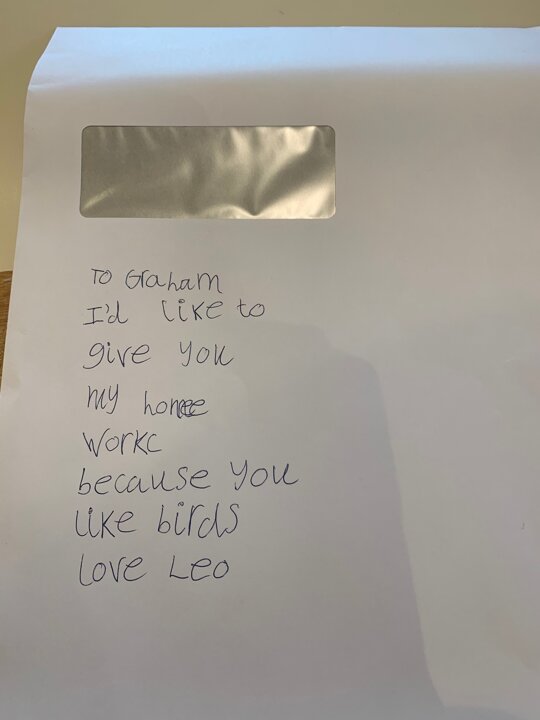 To Graham
I'd like to
give you
my home
workc
because you
like birds
love Leo